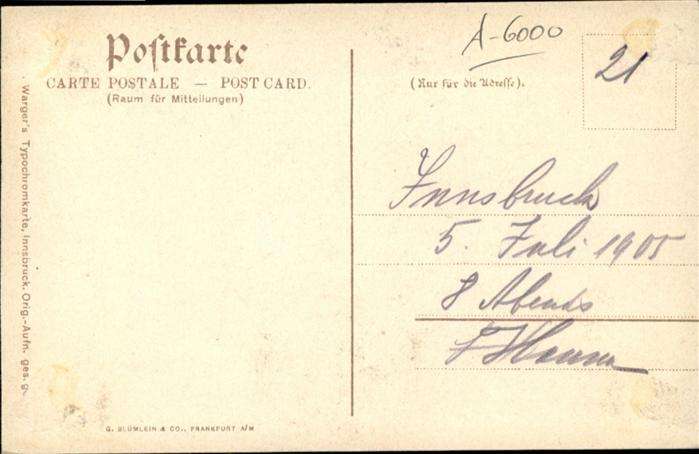 Postkarte
CARTE POSTALE — POST CARD.
(Raum für Mitteilungen)
Warger's Typochromkarte, Innsbruck. Orig.-Aufn. ges. g.
G. BLÜMLEIN & CO., FRANKFURT A/M
A-6000
(Nur für die Adresse).
21
Innsbruck
5. Juli 1905
8 Abends